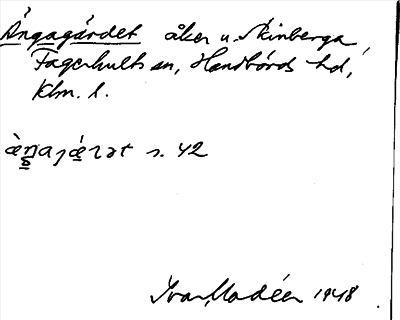 Ängagärdet åker u. Skinberga,
Fagerhults sn, Handbörds hd,
Klm. l.
æ̀ŋajǽɽət s. 42
Ivar Modéer 1948